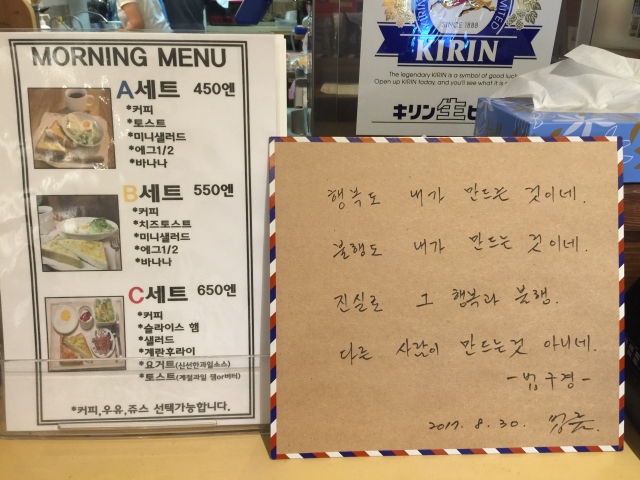 MORNING MENU
A세트 450엔
*커피
*토스트
*미니샐러드
*에그1/2
*바나나
B세트 550엔
*커피
*치즈토스트
*미니샐러드
*에그1/2
*바나나
C세트 650엔
*커피
*슬라이스 햄
*샐러드
*계란후라이
*요거트(신선한과일소스)
*토스트(계절과일 잼or버터)
*커피,우유,쥬스 선택가능합니다.
SINCE 1888
LIMITED
KIRIN
The legendary KIRIN is a symbol of good luck.
Open up KIRIN today, and you'll see what it is
キリン生ビ
행복도 내가 만드는 것이네.
불행도 내가 만드는 것이네.
진실로 그 행복과 불행.
다른 사람이 만드는것 아니네.
-법구경-
2017. 8. 30.